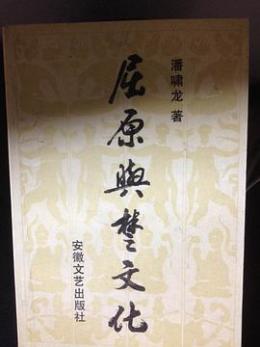 潘啸龙 著
屈原與楚文化
安徽文艺出版社